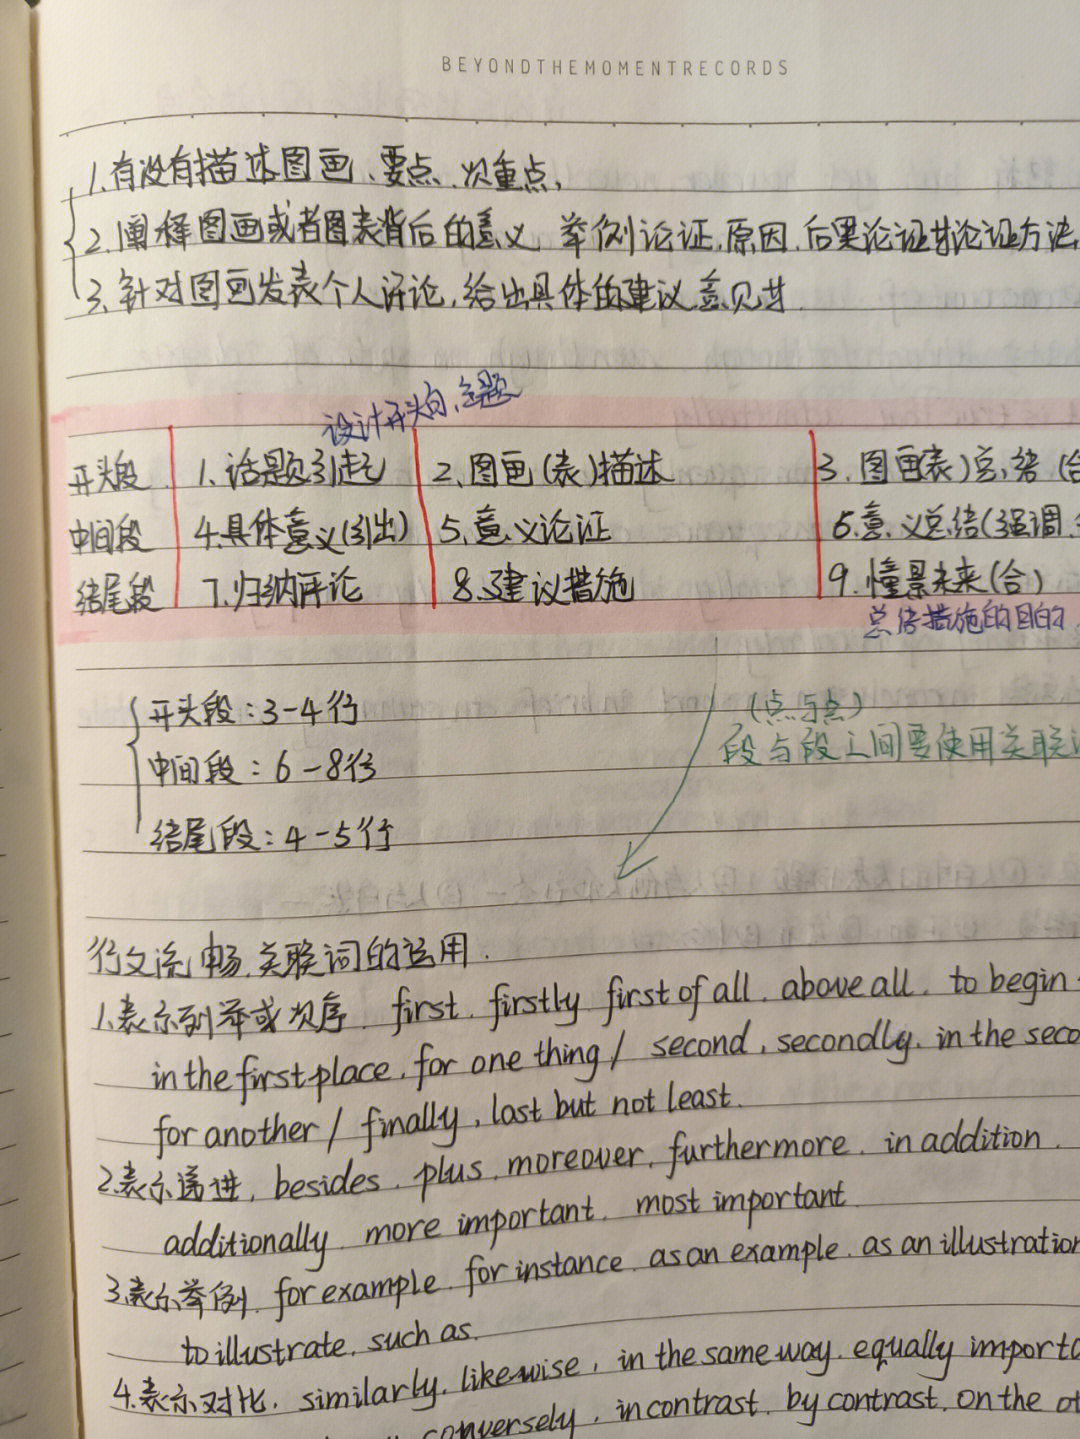 BEYONDTHEMOMENTRECORDS
1.有没有描述图画、要点、次重点,
2.阐释图画或者图表背后的意义 举例论证.原因.后果论证等论证方法
3.针对图画发表个人评论,给出具体的建议.意见等
设计开头句、主题
开头段 1.话题引起 2.图画(表)描述 3.图画表)总结(合
中间段 4.具体意义(引出) 5.意义论证 6.意义总结(强调
结尾段 7.归纳评论 8.建议措施 9.憧景未来(合)
总结措施的目的
开头段:3-4行
(点与点)
段与段之间要使用关联
中间段:6-8行
结尾段:4-5行
行文流畅.关联词的运用.
1.表示列举或次序. first. firstly first of all. above all. to begin
in the first place. for one thing / second, secondly. in the seco
for another / finally, last but not least.
2.表示递进, besides. plus. moreover. furthermore. in addition.
additionally. more important. most important
3.表示举例. for example. for instance. as an example. as an illustration
to illustrate. such as.
4.表示对比. similarly. likewise, in the same way. equally importa
conversely, in contrast. by contrast. on the ot